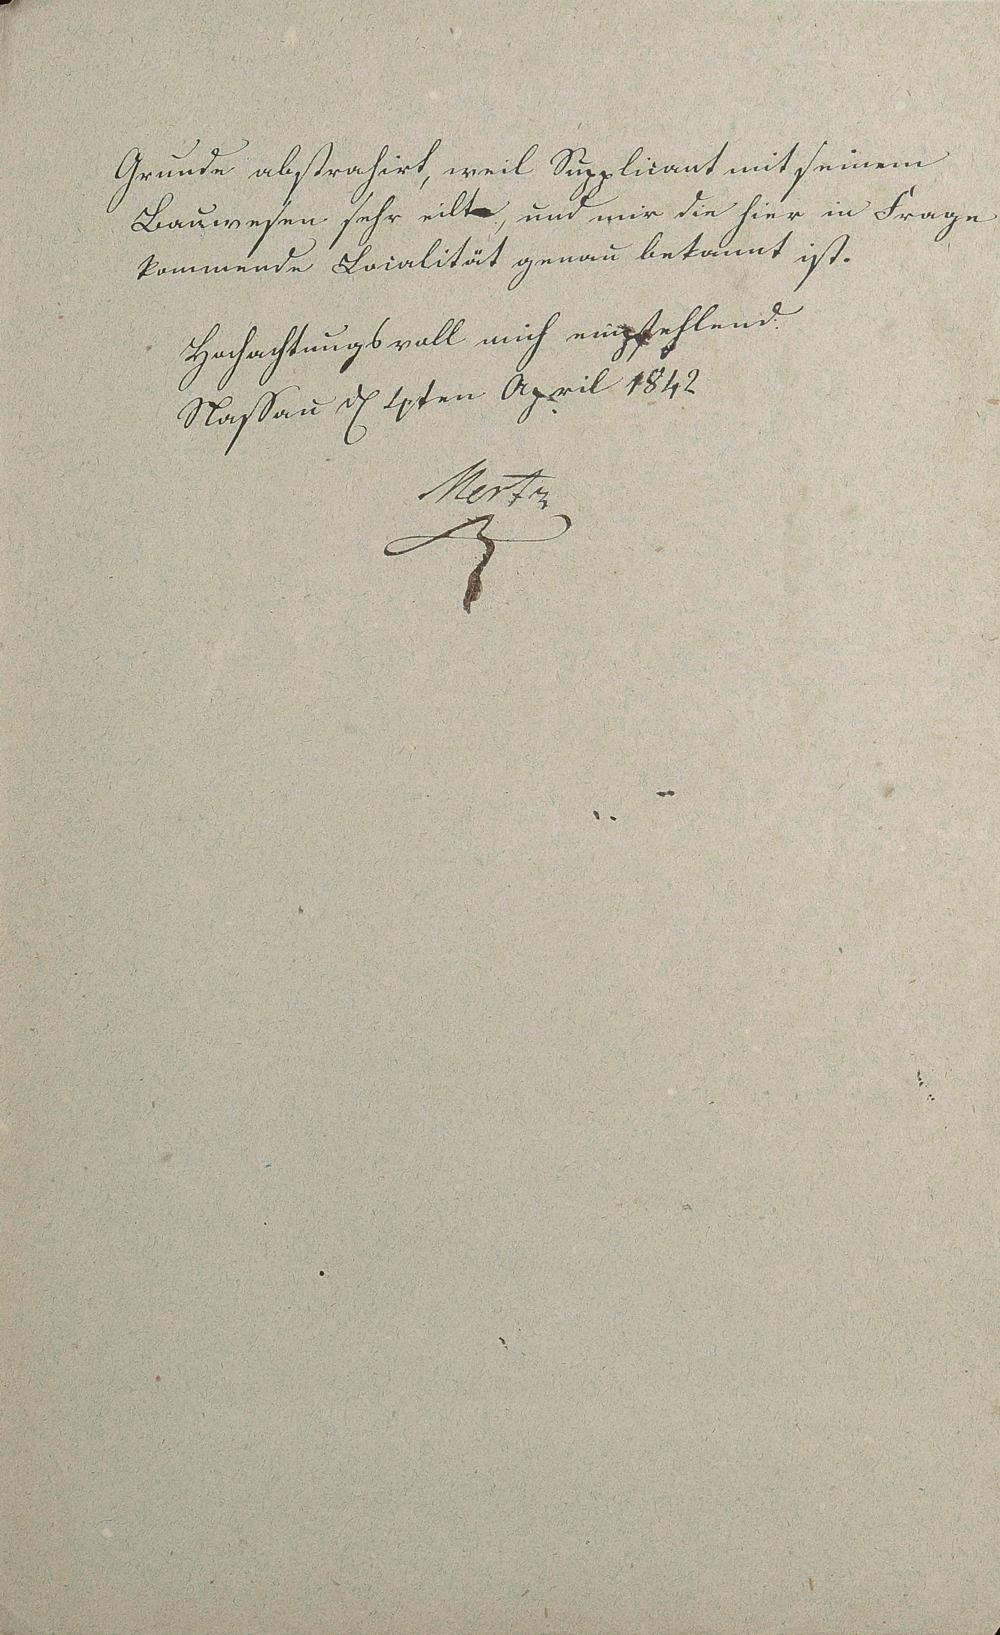 Grunde abstrahirt, weil Supplicant mit seinem
Bauwesen sehr eilt, und mir die hier in Frage
kommende Localität genau bekannt ist.
Hochachtungsvoll mich empfehlend.
Nassau d 4ten April 1842
Mertz